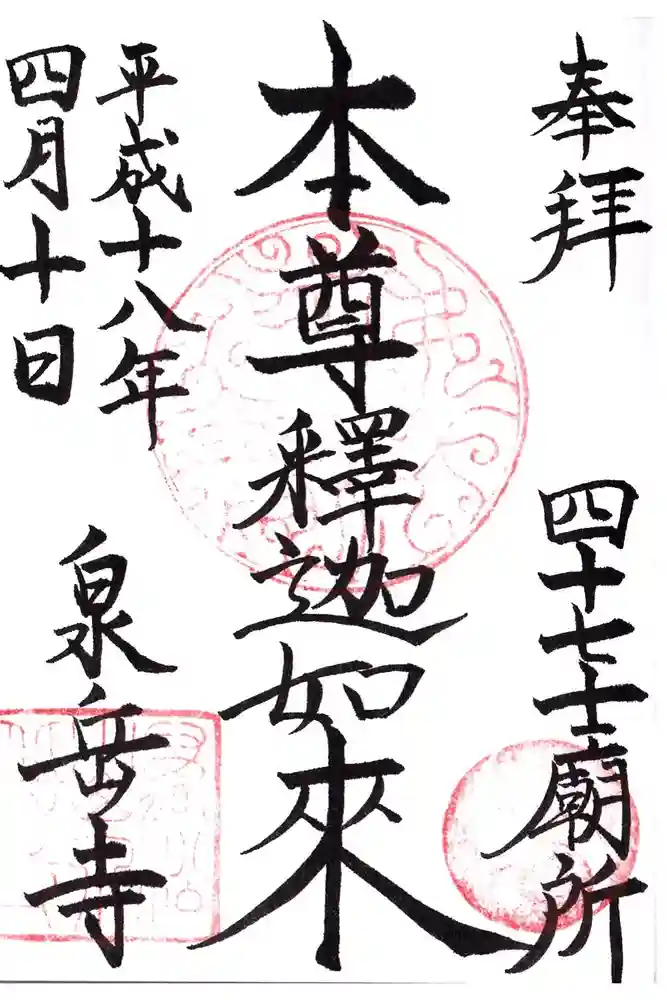 奉拝
四十七士廟所
本尊釋迦如來
平成十八年
四月十日
泉岳寺